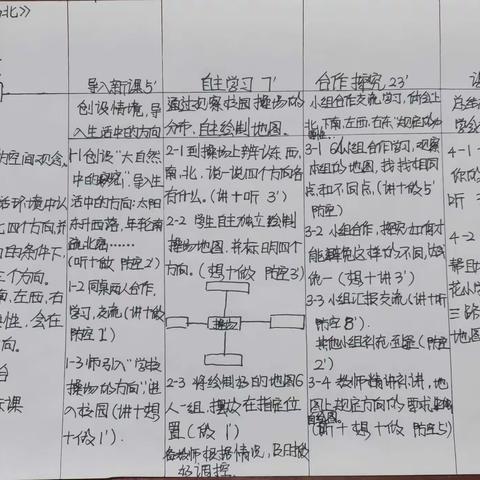 北》
的空间观念。
活环境中以
七四个方向并
的条件下,
三个方向。
南,左西,右
性,会在
向。
台
示课
导入新课5'
创设情境,导
入生活中的方向
1-1创设“大自然
中的”导入生
活中的方向:太阳
东升西落,年轮南
疏北密……
(听+做 防空2')
1-2 同桌两人合作,
学习,交流(讲+做
防空1')
1-3师引入“学校
操场的方向”进
入校园(讲+想
+做1').
自主学习 7'
通过观察校园操场的
分布,自主绘制地图。
2-1到操场上辨认东,西,
南,北,说一说四个方向各
有什么。(讲+听 3')
2-2 学生自主独立绘制
操场地图,并标明四个
方向。(想+做 防空3')
操场
2-3 将绘制好的地图6
人一组,摆放在指定位
置(做 1')
教师根据情况,及时做
好调控。
合作探究 23'
小组合作交流学习,体会上
北,下南,左西,右东规定的
3-1 6人小组合作学习,观察
本组的地图,找找相同
点和不同点(讲+做5'
防空)
3-2 小组合作,探究如何才
能避免这样的不同,试
统一(想+讲3')
3-3 小组汇报交流(讲+听
防空8').
其他小组补充,至(防空
2')
3-4 教师精讲补讲,地
图上规定方向的要求
(听+想+做 防空5')
总结
学会
4-1
你的
听
4-2
帮
花小
三路
地图